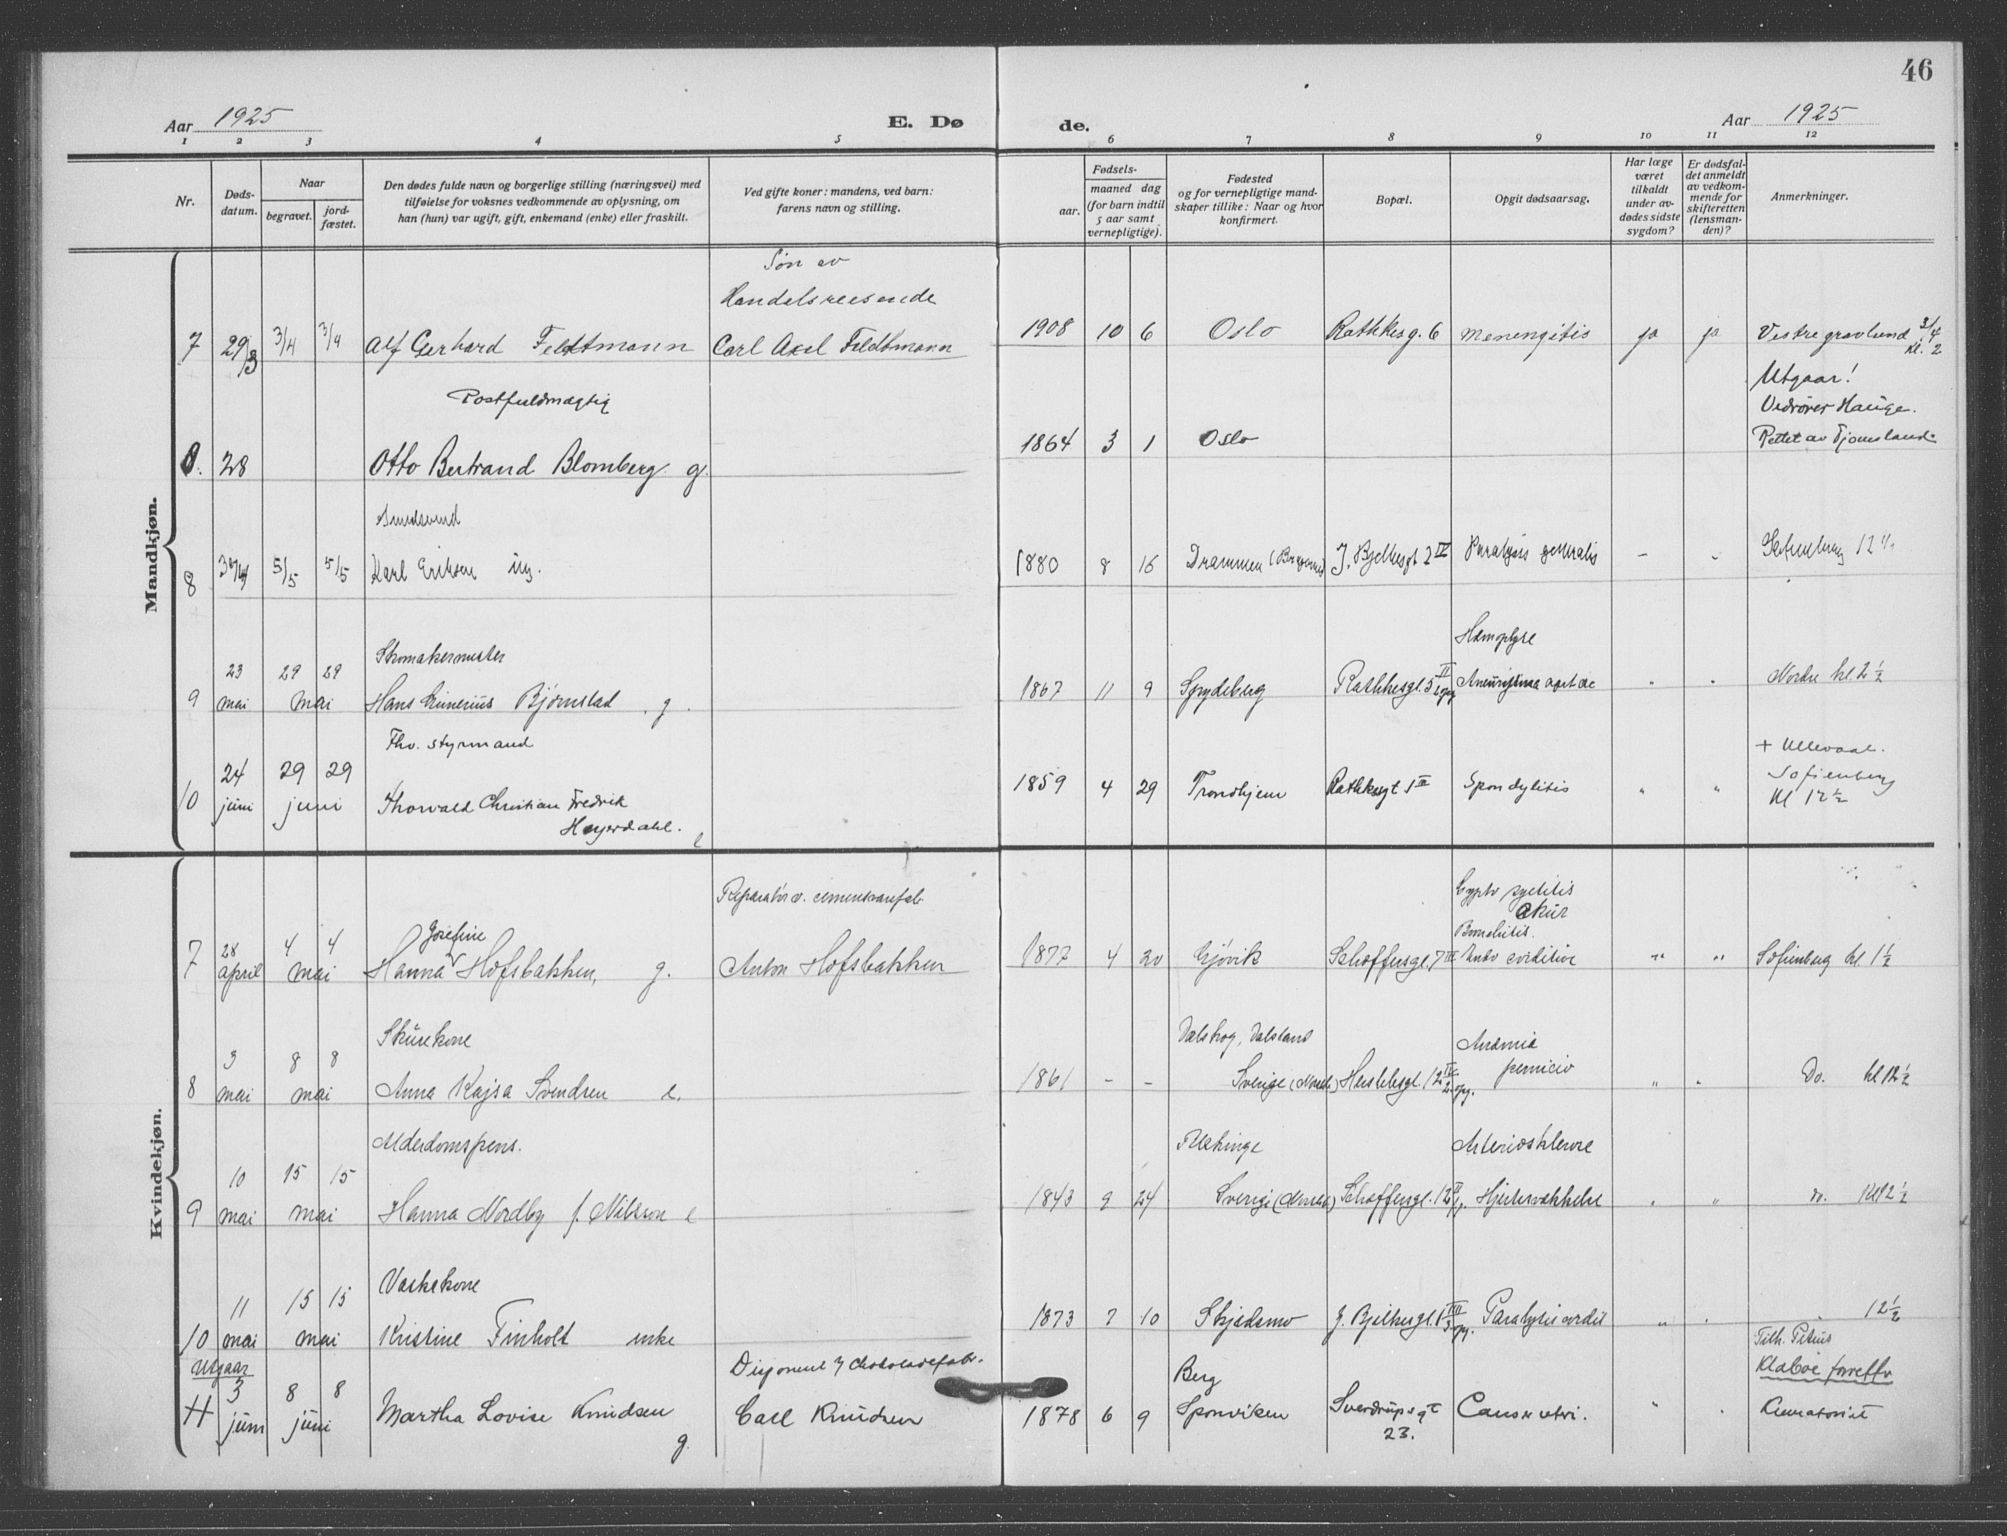 46
Aar 1925
E. Dø
de.
Aar 1925
1 2 3 4 5 6 7 8 9 10 11 12
Nr.
Døds-
datum.
Naar
begravet.
jord-
fæstet.
Den dødes fulde navn og borgerlige stilling (næringsvei) med
tilføielse for voksnes vedkommende av oplysning, om
han (hun) var ugift, gift, enkemand (enke) eller fraskilt.
Ved gifte koner: mandens, ved barn:
farens navn og stilling.
Fødsels-
aar.
maaned dag
(for barn indtil
5 aar samt
vernepligtige).
Fødested
og for vernepligtige mand-
skaper tillike: Naar og hvor
konfirmert.
Bopæl.
Opgit dødsaarsag.
Har læge
været
tilkaldt
under av-
dødes sidste
sygdom?
Er dødsfal-
det anmeldt
av vedkom-
mende for
skifteretten
(lensman-
den)?
Anmerkninger.
Mandkjøn.
Søn av
Handelsreisende
7 29/3 3/4 3/4 Alf Gerhard Feldtmann Carl Axel Feldtmann 1908 10 6 Oslo Rathkesg. 6 Menengitis ja ja Vestre gravlund 3/4
Kl. 2
Postfuldmægtig
Utgaar!
Vedrører Hauge.
28 Otto Bertrand Blomberg g. 1864 3 1 Oslo Rettet av Fjomsland.
Smedsvend
8 5/5 5/5 Karl Eriksen ug. 1880 8 16 Drammen (Bragernes) J. Bjelkesgt 2 IV Paralysis generalis - " Sofienberg 12 1/2
Skomakermester
Hæmoptyse
9 23 mai 29 29 mai Hans Bjørnstad g. 1867 11 9 Spydeberg Rathkesgt. 5 II opg Aneurisma aortae " " Nordre kl. 2 1/2
Fhv. styrmand
+ Ullevaal.
Sofienberg
Kl 12 1/2
10 24 juni 29 29 juni Thorvald Christian Fredrik
Heyerdahl. e 1859 4 29 Trondhjem Rathkesgt 1 III Spondylitis " "
Kvindekjøn.
Reparatør v. cementvarefab.
akut
7 28 april 4 4 mai Hanna Josefine Hofsbakken, g. Anton Hofsbakken 1877 4 20 Gjøvik Schøffersgt. 7 III " " Sofienberg kl. 1 1/2
Skurekone
Dalskog, Dalsland
Anæmia
pernicio
8 3 mai 8 8 mai Anna Kajsa Svendsen e. 1861 - - Sverige (Norsk) Herslebsgt. 12 IV 2 opg. " " Do. kl 12 1/2
Alderdomspens.
Blekinge
Arterioskleros
9 10 mai 15 15 mai Hanna Nordby f. Nilsson e 1843 9 24 Sverige (Norsk) Schøffersgt. 12 II Hjertesvækkelse " " do. Kl 12 1/2
Vaskekone
10 11 mai 15 15 mai Kristine Finholt enke 1873 7 10 Skjedsmo J. Bjelkesgt. 1 III 3 opg. Paralysis cordis " " 12 1/2
Utgaar
Disponent / chokoladefabr.
Berg
Tilh. Petrus
11 3 juni 8 8 juni Martha Lovise Knudsen
g. Carl Knudsen 1878 6 9 Sponviken Sverdrupsgt
23. Cancer uteri. " " Krematoriet